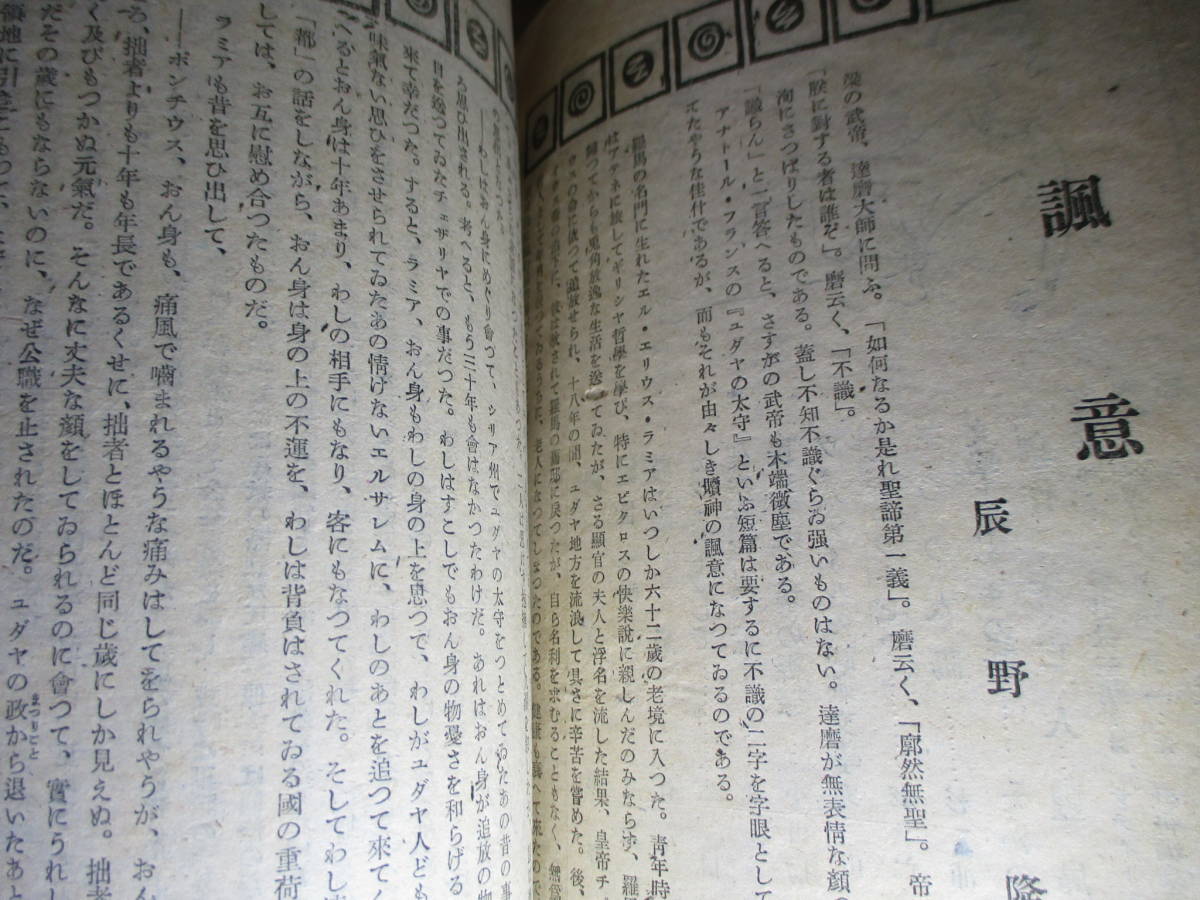 諷意
辰野隆
梁の武帝、達磨大師に問ふ。「如何なるか是れ聖諦第一義」。磨云く、「廓然無聖」。帝
「朕に對する者は誰ぞ」。磨云く、「不識」。
洵にさつぱりしたものである。蓋し不知不識ぐらゐ强いものはない。達磨が無表情な顔の
「識らん」と一言答へると、さすがの武帝も木端微塵である。
アナトール・フランスの『ユダヤの太守』といふ短篇は要するに不識の二字を字眼として
てたやうな佳什であるが、而もそれが由々しき贖神の諷意になつてゐるのである。
羅馬の名門に生れたエル・エリウス・ラミアはいつしか六十二歳の老境に入つた。青年時
はアテネに旅してギリシヤ哲學を學び、特にエピクロスの快樂說に親しんだのみならず、羅
歸つてからも
放逸な生活を送つてゐたが、さる顯官の夫人と浮名を流した結果、皇帝チ
ウスの命に依つて追放せられ、十八年の間、ユダヤ地方を流浪して具さに辛苦を嘗めた。後、
羅馬の舊邸に戻つたが、自ら名利を求むることもなく、
老人になつてしまつたのである。
――わしはおん身にめぐり會つて、シリア州でユダヤの太守をつとめてゐたあの昔の事
ろ思ひ出される。考へると、もう三十年も會はなかつたわけだ。あれはおん身が追放の
目を送つてゐたチェザリヤでの事だつた。わしはすこしでもおん身の物憂さを和らげる
來て幸だつた。すると、ラミア、おん身もわしの身の上を思つて、わしがユダヤ人ども
味氣ない思ひをさせられてゐたあの情けないエルサレムに、わしのあとを追つて來てく
へるとおん身は十年あまり、わしの相手にもなり、客にもなつてくれた。そしてわし
「都」の話をしながら、おん身は身の上の不運を、わしは背負はされてゐる國の重荷
しては、お互に慰め合つたものだ。
ラミアも昔を思ひ出して、
――ポンチウス、おん身も、痛風で嚙まれるやうな痛みはしてをられやうが、おん
ろ、拙者よりも十年も年長であるくせに、拙者とほとんど同じ歳にしか見えぬ。拙者
く及びもつかぬ元氣だ。そんなに丈夫な顔をしてゐられるのに會つて、實にうれし
だその歳にもならないのに、なぜ公職を止されたのだ。ユダヤの政まつりごとから退いたあと
領地に引き